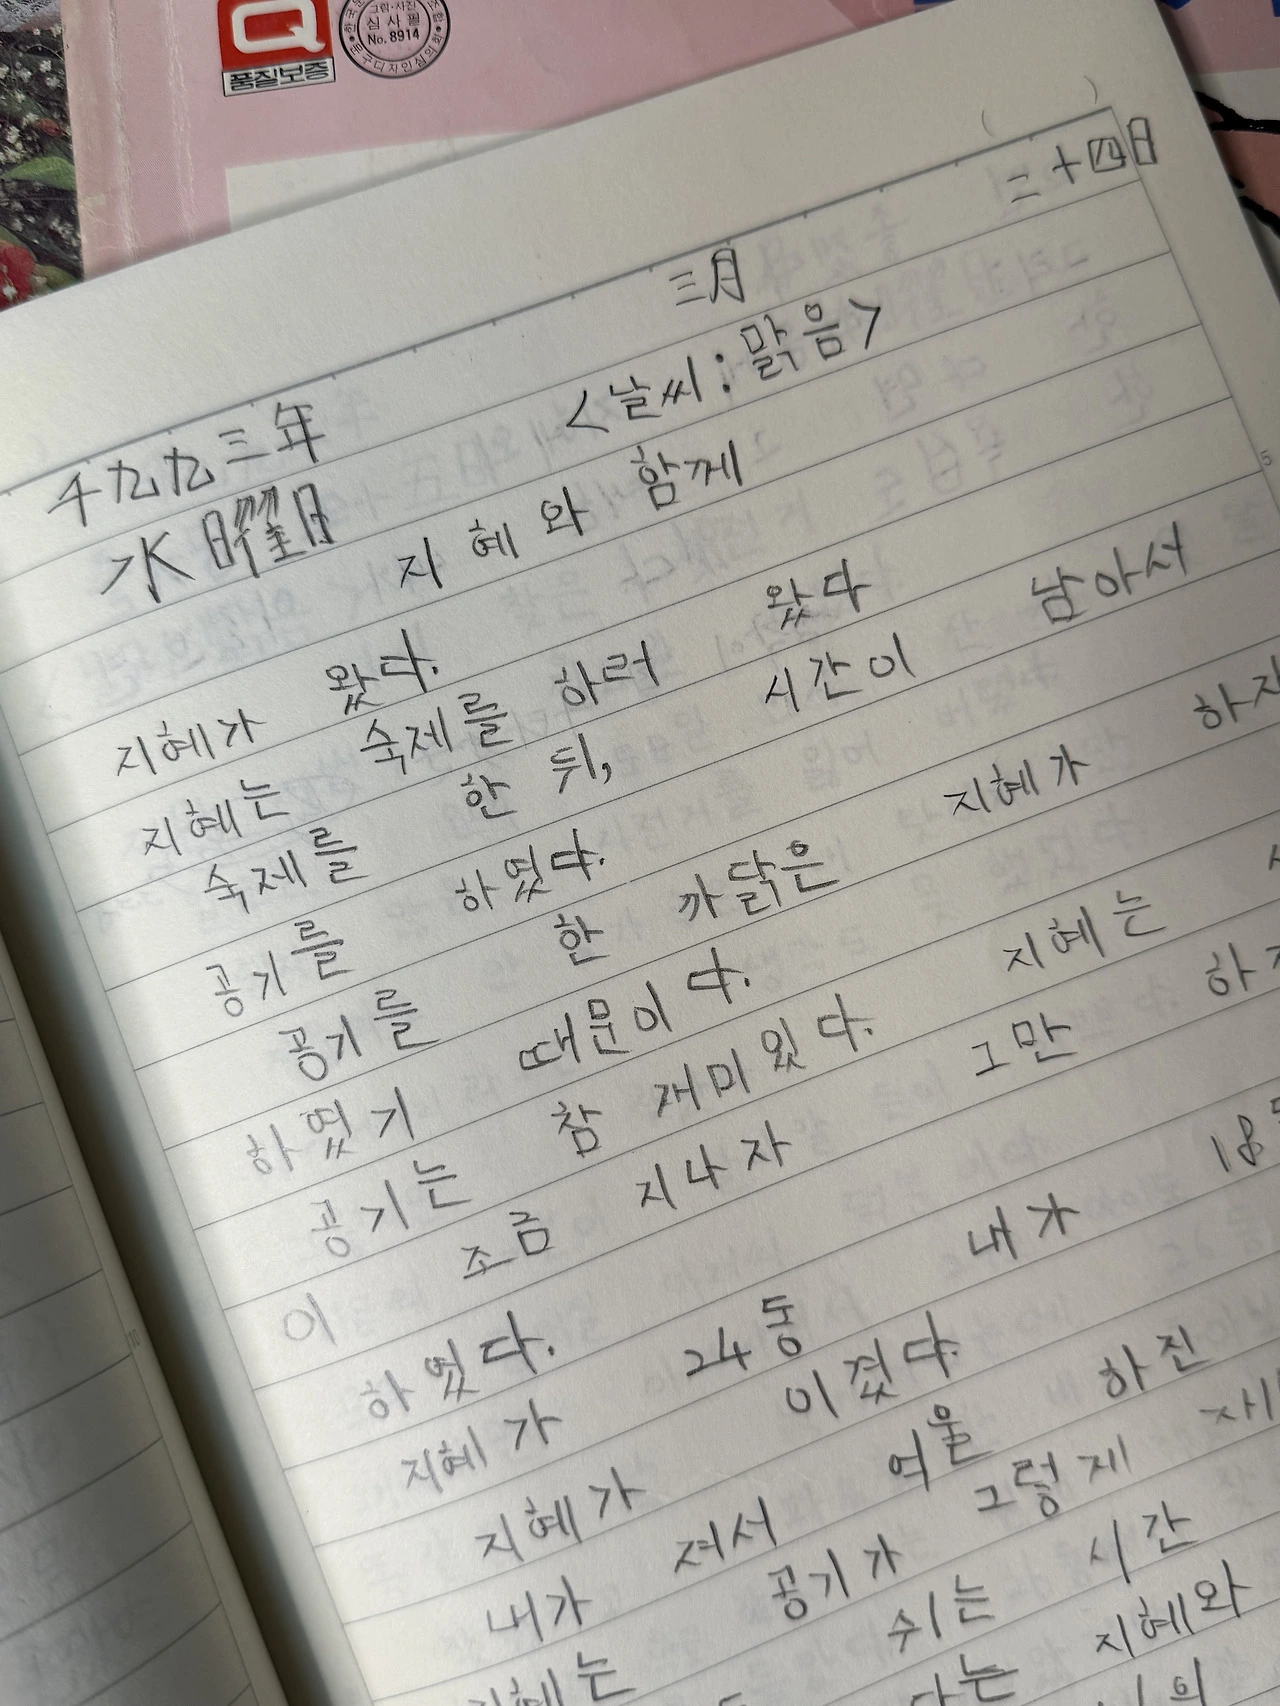 Q
품질보증
그림·사진
심사필
No. 8914
문구디자인심의회
千九九三年 三月 二十四日
水曜日 <날씨:맑음>
지혜와 함께
지혜가 왔다.
지혜는 숙제를 하러 왔다
숙제를 한 뒤, 시간이 남아서
공기를 하였다.
공기를 한 까닭은 지혜가 하자
하였기 때문이다.
공기는 참 재미있다. 지혜는
이 조금 지나자 그만
하였다.
지혜가 24동 내가 18
지혜가 이겼다.
내가 져서 억울 하진
지혜는 공기가 그렇게
쉬는 시간
지혜와
5
10